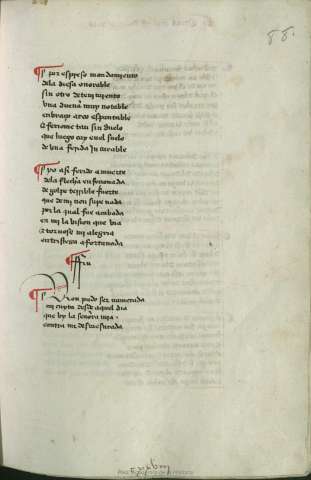 88.
¶ por espreso mandamiento
dela diesa onorable
sin otro detenimiento
vna dueña muy notable
enbraço arco espantable
& ferionme tan sin duelo
que luego cay en el suelo
de vna ferida incurable
¶ yo asi ferido a muerte
dela flecha enferionada
de golpe terrible fuerte
que de mi non supe nada
por lo qual fue
en mi la bision que via
& tornose mi alegria
en tristeza afortunada
¶ ffin
¶ Non pudo ser numerada
mi cuyta desde aquel dia
que vy la señora mia
contra mi desmesurada